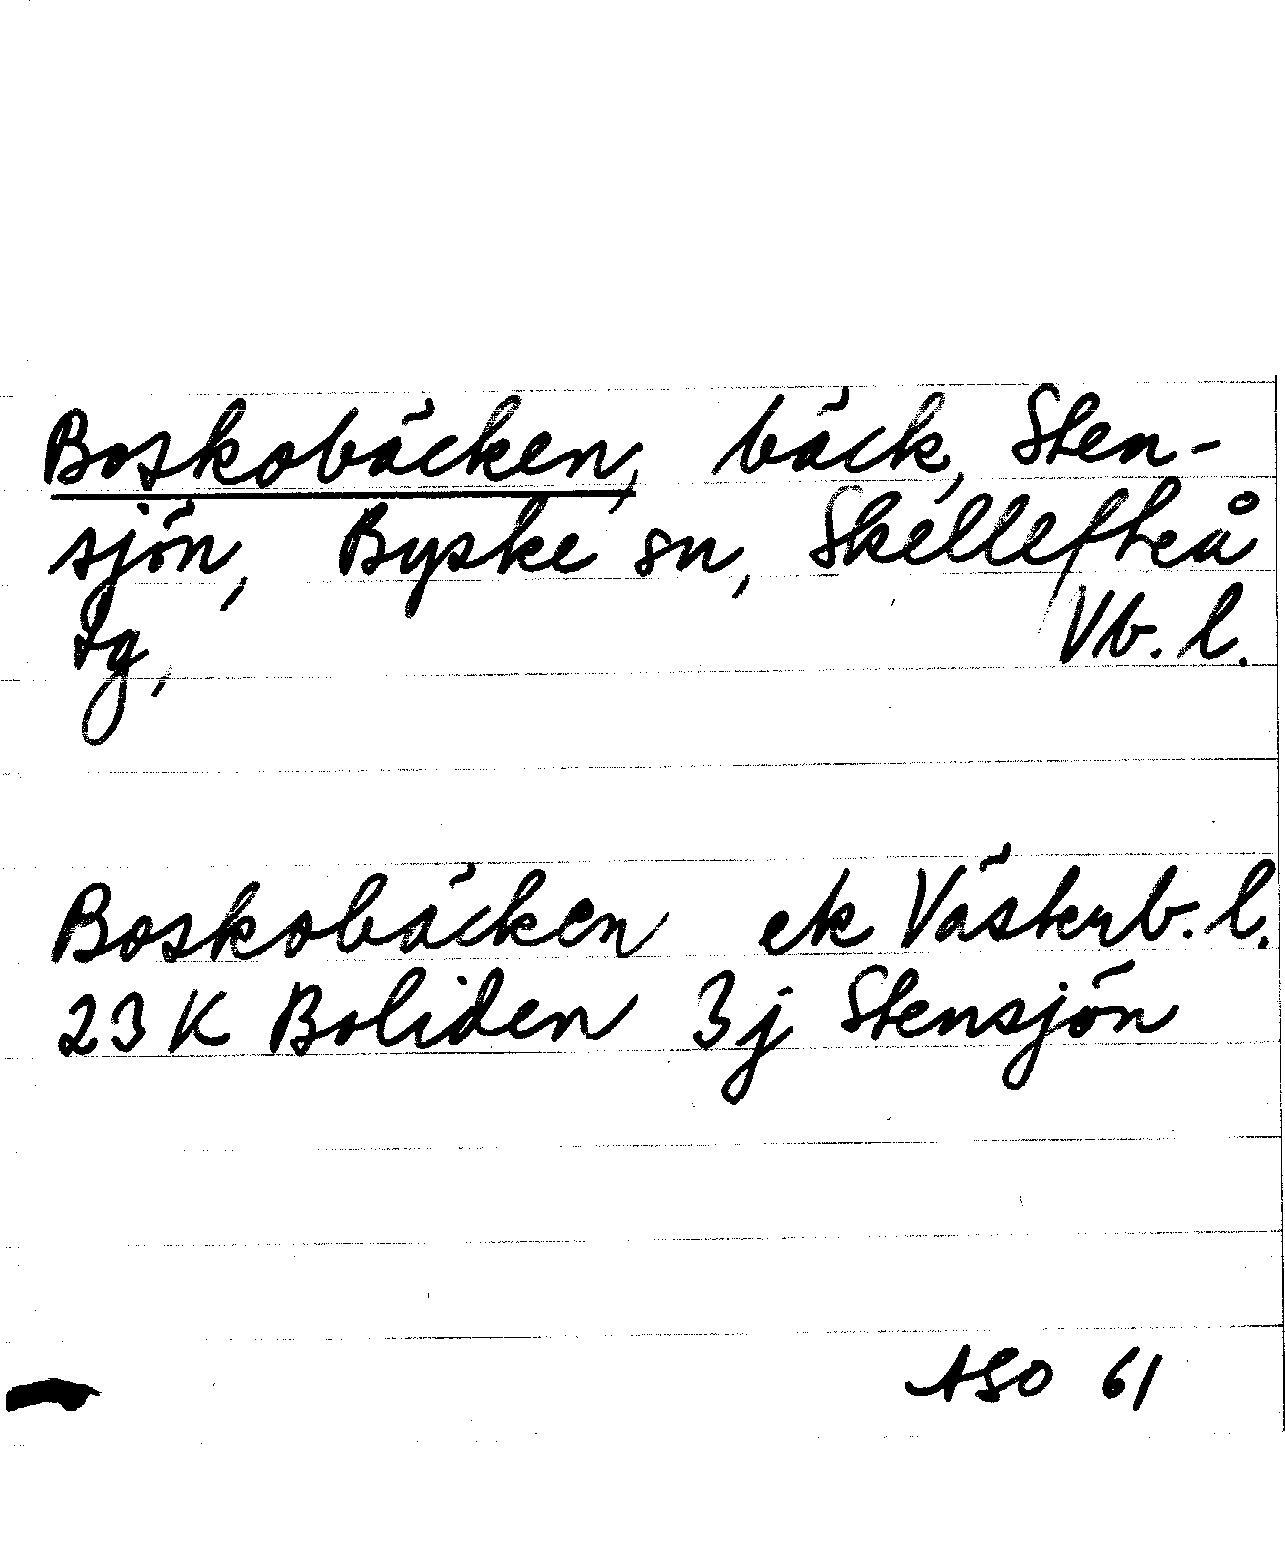 Boskobäcken, bäck, Sten-
sjön, Byske sn, Skellefteå
tg, Vb. l.
Boskobäcken ek Västerb. l.
23 K Boliden 3j Stensjön
ASO 61